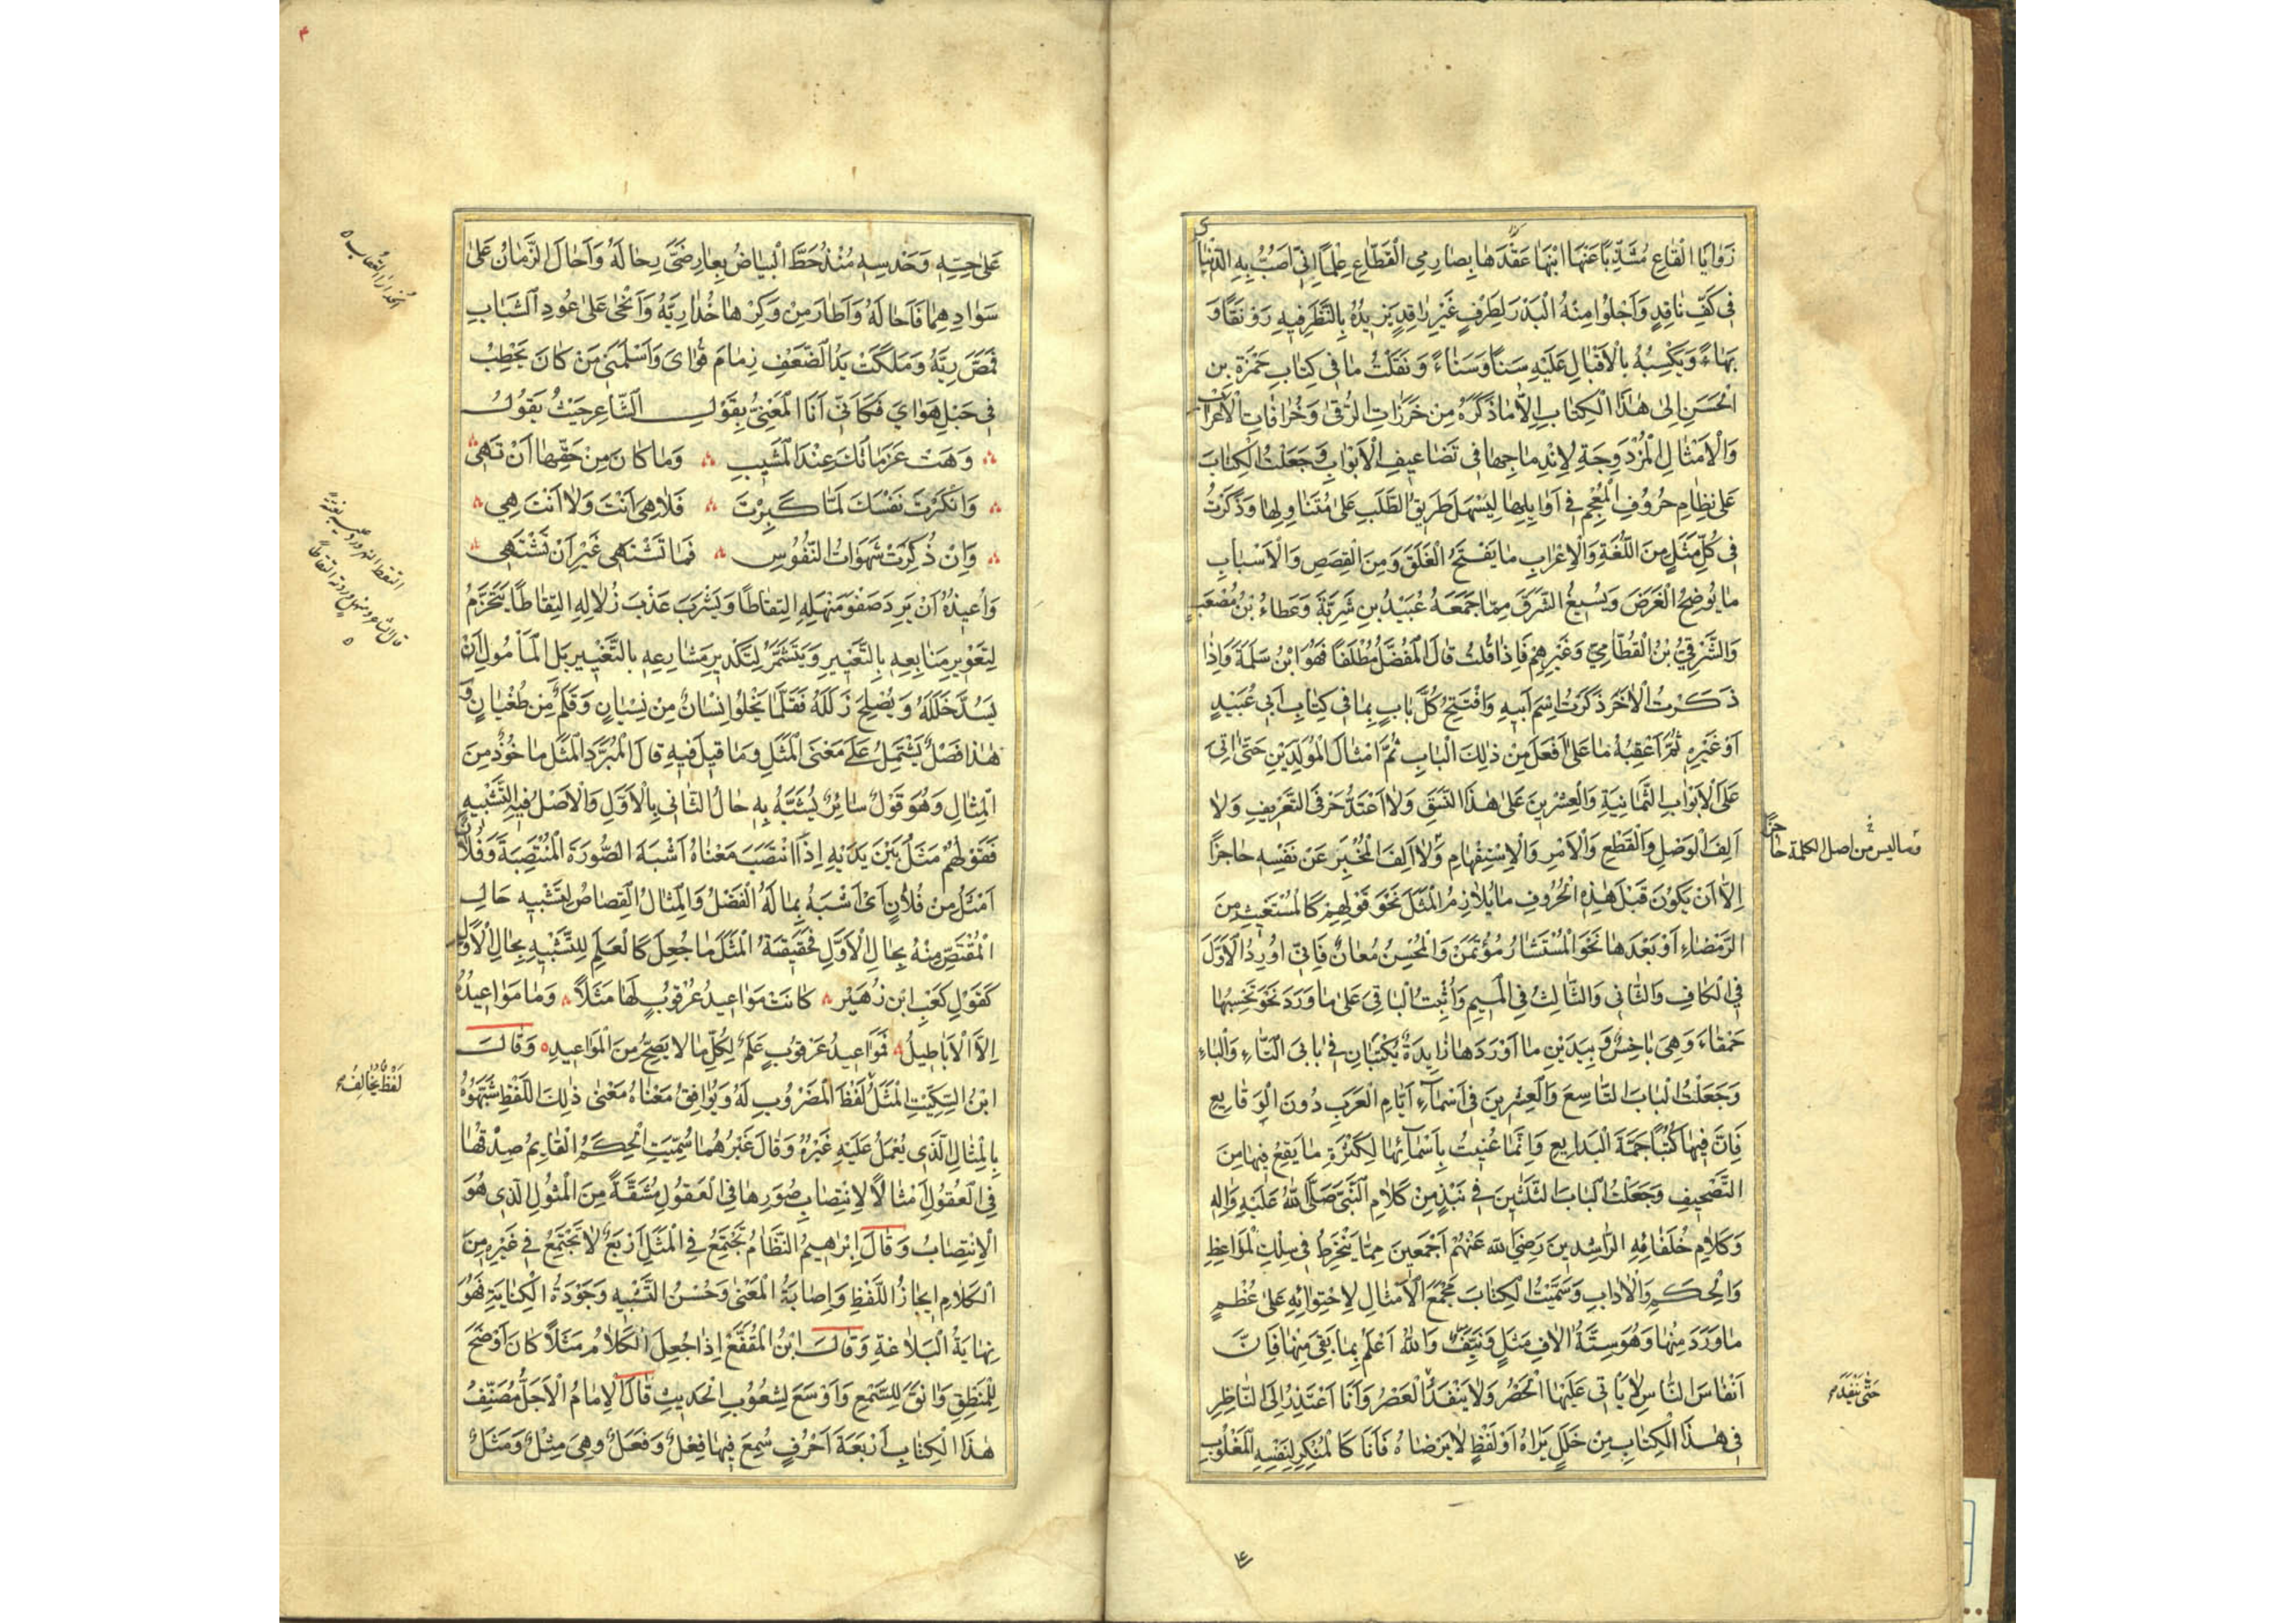 زَوَايَا الْبِقَاعِ مُشَذِّبًا عَنْهَا أُبَنَهَا عَقْدَهَا بِصَارِمِي الْقَطَّاعِ عِلْمًا إِنِّي أَصُبُّ بِهِ الدِّينَارَ
فِي كَفِّ نَاقِدٍ وَأَجْلُوا مِنْهُ الْبَدْرَ لِطَرْفٍ غَيْرِ رَاقِدٍ يَزِيدُهُ بِالنَّظَرِ فِيهِ رَوْنَقًا وَ
بَهَاءً وَيَكْسِبُهُ بِالْإِقْبَالِ عَلَيْهِ سَنًا وَسَنَاءً وَنَقَلْتُ مَا فِي كِتَابِ حَمْزَةَ بْنِ
الْحَسَنِ إِلَى هٰذَا الْكِتَابِ إِلَّا مَا ذَكَرَهُ مِنْ خَرَزَاتِ الرُّقَى وَخُرَافَاتِ الْأَعْرَابِ
وَالْأَمْثَالِ الْمُزْدَوِجَةِ لِانْدِمَاجِهَا فِي تَضَاعِيفِ الْأَبْوَابِ وَجَعَلْتُ الْكِتَابَ
عَلَى نِظَامِ حُرُوفِ الْمُعْجَمِ فِي أَوَائِلِهَا لِيَسْهُلَ طَرِيقُ الطَّلَبِ عَلَى مُتَنَاوِلِهَا وَذَكَرْتُ
فِي كُلِّ مَثَلٍ مِنَ اللُّغَةِ وَالْإِعْرَابِ مَا يَفْتَحُ الْغَلَقَ وَمِنَ الْقِصَصِ وَالْأَسْبَابِ
مَا يُوضِحُ الْغَرَضَ وَيُسِيغُ الشَّرَقَ مِمَّا جَمَعَهُ عُبَيْدُ بْنُ شَرِيَّةَ وَعَطَاءُ بْنُ مُصْعَبٍ
وَالشَّرْقِيُّ بْنُ الْقُطَامِيِّ وَغَيْرُهُمْ فَإِذَا قُلْتُ قَالَ الْمُفَضَّلُ مُطْلَقًا فَهُوَ ابْنُ سَلَمَةَ وَإِذَا
ذَكَرْتُ الْآخَرَ ذَكَرْتُ اسْمَ أَبِيهِ وَأَفْتَتِحُ كُلَّ بَابٍ بِمَا فِي كِتَابِ أَبِي عُبَيْدٍ
أَوْ غَيْرِهِ ثُمَّ أُعْقِبُهُ مَا عَلَى أَفْعَلَ مِنْ ذٰلِكَ الْبَابِ ثُمَّ أَمْثَالَ الْمُوَلَّدِينَ حَتَّى اٰتِيَ
عَلَى الْأَبْوَابِ الثَّمَانِيَةِ وَالْعِشْرِينَ عَلَى هٰذَا النَّسَقِ وَلَا أَعْتَدُّ حَرْفَ التَّعْرِيفِ وَلَا
أَلِفَ الْوَصْلِ وَالْقَطْعِ وَالْأَمْرِ وَالْاِسْتِفْهَامِ وَلَا أَلِفَ الْمُخْبِرِ عَنْ نَفْسِهِ حَاجِزًا
وما ليس من اصل الكلمة حاجزًا
إِلَّا أَنْ يَكُونَ قَبْلَ هٰذِهِ الْحُرُوفِ مَا يُلَازِمُ الْمَثَلَ نَحْوَ قَوْلِهِمْ كَالْمُسْتَغِيثِ مِنَ
الرَّمْضَاءِ أَوْ بَعْدَهَا نَحْوَ الْمُسْتَشَارُ مُؤْتَمَنٌ وَالْمُحْسِنُ مُعَانٌ فَإِنِّي أُورِدُ الْأَوَّلَ
فِي الْكَافِ وَالثَّانِي وَالثَّالِثَ فِي الْمِيمِ وَأُثْبِتُ الْبَاقِيَ عَلَى مَا وَرَدَ نَحْوَ تَحْسِبُهَا
حَمْقَاءَ وَهِيَ بَاخِسٌ وَبِيَدَيْنِ مَا أَوْرَدَهَا زَائِدَةٌ يُكْتَبَانِ فِي بَابَيِ التَّاءِ وَالْبَاءِ
وَجَعَلْتُ الْبَابَ التَّاسِعَ وَالْعِشْرِينَ فِي أَسْمَاءِ أَيَّامِ الْعَرَبِ دُونَ الْوَقَائِعِ
فَإِنَّ فِيهَا كُتُبًا جَمَّةَ الْبَدَائِعِ وَإِنَّمَا عُنِيتُ بِأَسْمَائِهَا لِكَثْرَةِ مَا يَقَعُ فِيهَا مِنَ
التَّصْحِيفِ وَجَعَلْتُ الْبَابَ الثَّلٰثِينَ فِي نُبَذٍ مِنْ كَلَامِ النَّبِيِّ صَلَّى اللهُ عَلَيْهِ وَاٰلِهِ
وَكَلَامِ خُلَفَائِهِ الرَّاشِدِينَ رَضِيَ اللهُ عَنْهُمْ أَجْمَعِينَ مِمَّا يَنْخَرِطُ فِي سِلْكِ الْمَوَاعِظِ
وَالْحِكَمِ وَالْاٰدَابِ وَسَمَّيْتُ الْكِتَابَ مَجْمَعَ الْأَمْثَالِ لِاحْتِوَائِهِ عَلَى عُظْمِ
مَا وَرَدَ مِنْهَا وَهُوَ سِتَّةُ اٰلَافِ مَثَلٍ وَنَيِّفٌ وَاللهُ أَعْلَمُ بِمَا بَقِيَ مِنْهَا فَإِنَّ
أَنْفَاسَ النَّاسِ لَا يَأْتِي عَلَيْهَا الْحَصْرُ وَلَا يَنْفَدُ الْعَصْرُ وَأَنَا أَعْتَذِرُ إِلَى النَّاظِرِ
حَتَّى يَنْفَدَ
فِي هٰذَا الْكِتَابِ مِنْ خَلَلٍ يَرَاهُ أَوْ لَفْظٍ لَا يَرْضَاهُ فَأَنَا كَالْمُنْكِرِ لِنَفْسِهِ الْمَغْلُوبِ
عَلَى حِسِّهِ وَحَدْسِهِ مُنْذُ حَطَّ الْبَيَاضُ بِعَارِضَيَّ رِحَالَهُ وَأَحَالَ الزَّمَانُ عَلَى
سَوَادِهِمَا فَأَحَالَهُ وَأَطَارَ مِنْ وَكْرِهَا خُدَارِيَّهُ وَأَنْحَى عَلَى عُودِ الشَّبَابِ
فَمَصَّ رِيَّهُ وَمَلَكَتْ يَدُ الضَّعْفِ زِمَامَ قُوَايَ وَأَسْلَمَنِي مَنْ كَانَ يَحْطِبُ
فِي حَبْلِ هَوَايَ فَكَأَنِّي أَنَا الْمَعْنِيُّ بِقَوْلِ الشَّاعِرِ حَيْثُ يَقُولُ
وَهَتْ عَزَمَاتُكَ عِنْدَ الْمَشِيبِ وَمَا كَانَ مِنْ حَقِّهَا أَنْ تَهِي
وَأَنْكَرْتَ نَفْسَكَ لَمَّا كَبِرْتَ فَلَا هِيَ أَنْتَ وَلَا أَنْتَ هِي
وَإِنْ ذُكِرَتْ شَهَوَاتُ النُّفُوسِ فَمَا تَشْتَهِي غَيْرَ أَنْ تَشْتَهِي
وَأُعِيذُهُ أَنْ يَرِدَ صَفْوَ مَنْهَلِهِ الْتِقَاطًا وَيَشْرَبَ عَذْبَ زُلَالِهِ الْتِقَاطًا يَتَحَزَّمُ
لِتَعْوِيرِ مَنَابِعِهِ بِالتَّعْيِيرِ وَيَتَشَمَّرُ لِتَكْدِيرِ مَشَارِعِهِ بِالتَّغْيِيرِ بَلِ الْمَأْمُولُ أَنْ
يَسُدَّ خَلَلَهُ وَيُصْلِحَ زَلَلَهُ فَقَلَّمَا يَخْلُوا إِنْسَانٌ مِنْ نِسْيَانٍ وَقَلَمٌ مِنْ طُغْيَانٍ وَ
هٰذَا فَصْلٌ يَشْتَمِلُ عَلَى مَعْنَى الْمَثَلِ وَمَا قِيلَ فِيهِ قَالَ الْمُبَرَّدُ الْمَثَلُ مَاخُوذٌ مِنَ
الْمِثَالِ وَهُوَ قَوْلٌ سَائِرٌ يُشَبَّهُ بِهِ حَالُ الثَّانِي بِالْأَوَّلِ وَالْأَصْلُ فِيهِ التَّشْبِيهُ
فَقَوْلُهُمْ مَثَلَ بَيْنَ يَدَيْهِ إِذَا انْتَصَبَ مَعْنَاهُ أَشْبَهَ الصُّورَةَ الْمُنْتَصِبَةَ وَفُلَانٌ
أَمْثَلُ مِنْ فُلَانٍ أَيْ أَشْبَهُ بِمَا لَهُ الْفَضْلُ وَالْمِثَالُ الْقِصَاصُ لِتَشْبِيهِ حَالِ
الْمُقْتَصِّ مِنْهُ بِحَالِ الْأَوَّلِ فَحَقِيقَةُ الْمَثَلِ مَا جُعِلَ كَالْعَلَمِ لِلتَّشْبِيهِ بِحَالِ الْأَوَّلِ
كَقَوْلِ كَعْبِ ابْنِ زُهَيْرٍ كَانَتْ مَوَاعِيدُ عُرْقُوبٍ لَهَا مَثَلًا وَمَا مَوَاعِيدُهُ
إِلَّا الْأَبَاطِيلُ فَمَوَاعِيدُ عُرْقُوبٍ عَلَمٌ لِكُلِّ مَا لَا يَصِحُّ مِنَ الْمَوَاعِيدِ وَقَالَ
ابْنُ السِّكِّيتِ الْمَثَلُ لَفْظَ الْمَضْرُوبِ لَهُ وَيُوَافِقُ مَعْنَاهُ مَعْنَى ذٰلِكَ اللَّفْظِ شَبَّهُوهُ
لَفْظٌ يُخَالِفُ
بِالْمِثَالِ الَّذِي يُعْمَلُ عَلَيْهِ غَيْرُهُ وَقَالَ غَيْرُهُمَا سُمِّيَتِ الْحِكَمُ الْقَائِمُ صِدْقُهَا
فِي الْعُقُولِ أَمْثَالًا لِانْتِصَابِ صُوَرِهَا فِي الْعُقُولِ مُشْتَقَّةً مِنَ الْمُثُولِ الَّذِي هُوَ
الْاِنْتِصَابُ وَقَالَ إِبْرٰهِيمُ النَّظَّامُ تَجْتَمِعُ فِي الْمَثَلِ أَرْبَعٌ لَا تَجْتَمِعُ فِي غَيْرِهِ مِنَ
الْكَلَامِ إِيجَازُ اللَّفْظِ وَإِصَابَةُ الْمَعْنَى وَحُسْنُ التَّشْبِيهِ وَجَوْدَةُ الْكِنَايَةِ فَهُوَ
نِهَايَةُ الْبَلَاغَةِ وَقَالَ ابْنُ الْمُقَفَّعِ إِذَا جُعِلَ الْكَلَامُ مَثَلًا كَانَ أَوْضَحَ
لِلْمَنْطِقِ وَاٰنَقَ لِلسَّمْعِ وَأَوْسَعَ لِشُعُوبِ الْحَدِيثِ قَالَ الْإِمَامُ الْأَجَلُّ مُصَنِّفُ
هٰذَا الْكِتَابِ أَرْبَعَةُ أَحْرُفٍ سُمِعَ فِيهَا فِعْلٌ وَفَعَلٌ وَهِيَ مِثْلٌ وَمَثَلٌ